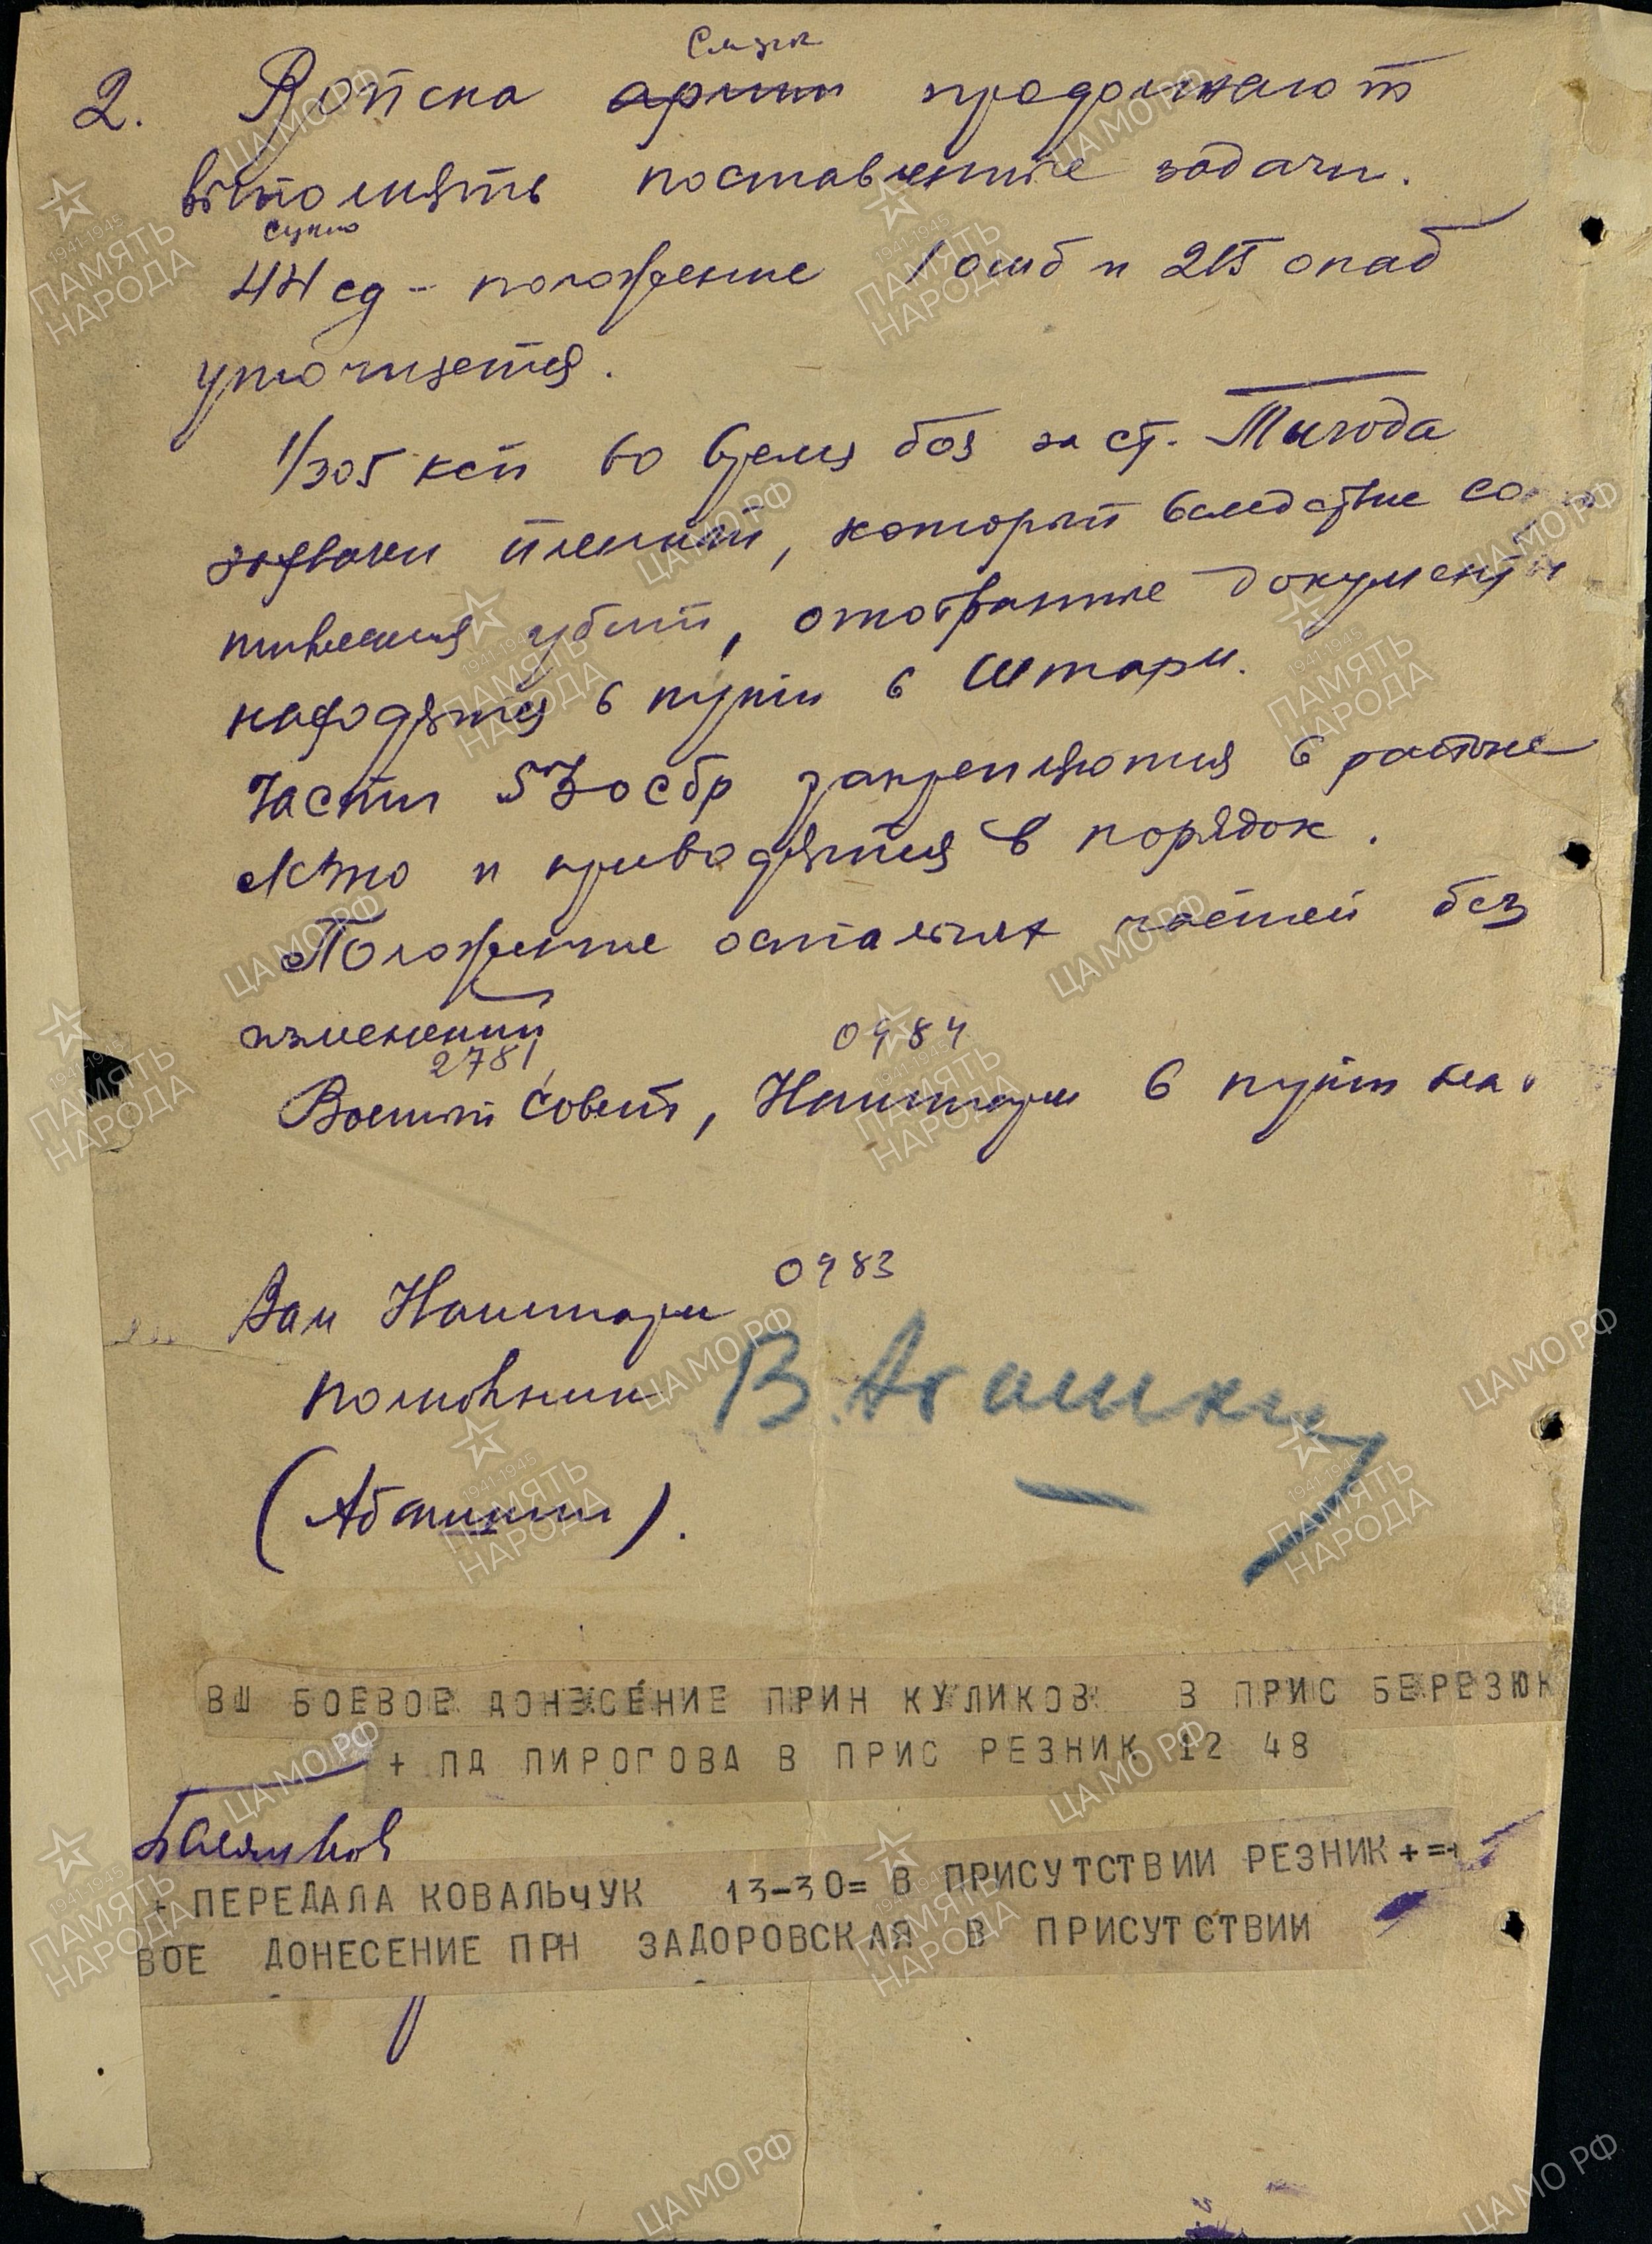 2. Войска армии продолжают
выполнять поставленные задачи.
44 сд - положение 1 ошб и 215 опаб
уточняется.
1/305 ксп во время боя за ст. Тигода
захвачен пленный, который вследствие со
тивления убит, отобранные документы
находятся в пути в Штарм.
Части 53 осбр закрепляются в районе
и приводятся в порядок.
Положение остальных частей без
изменений
2781 0484
Военный Совет, Наштарм в пути на
0483
Зам Наштарм
полковник В. Агашкин
(Абашкин).
ВШ БОЕВОЕ ДОНЕСЕНИЕ ПРИН КУЛИКОВ В ПРИС БЕРЕЗЮК
+ ПД ПИРОГОВА В ПРИС РЕЗНИК 12 48
+ ПЕРЕДАЛА КОВАЛЬЧУК 13-30= В ПРИСУТСТВИИ РЕЗНИК +=+
ВОЕ ДОНЕСЕНИЕ ПРН ЗАДОРОВСКАЯ В ПРИСУТСТВИИ
ПАМЯТЬ НАРОДА
1941-1945
ЦАМО РФ